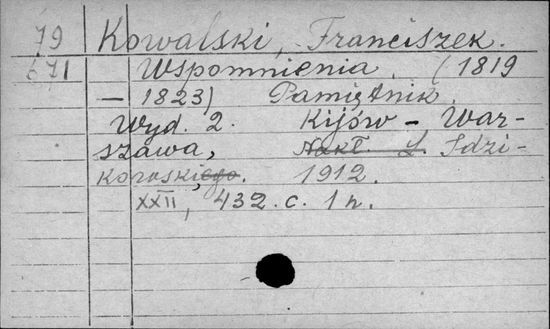 79 Kowalski, Franciszek.
671 Wspomnienia. (1819
— 1823) Pamiętnik.
Wyd. 2. Kijów – War-
szawa, Nakł. L. Idzi-
kowski,ego. 1912.
XXII, 432. c. 1 н.